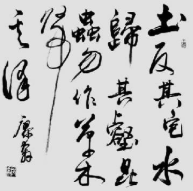 土反其宅水
歸其壑昆
蟲勿作草木
歸
其澤